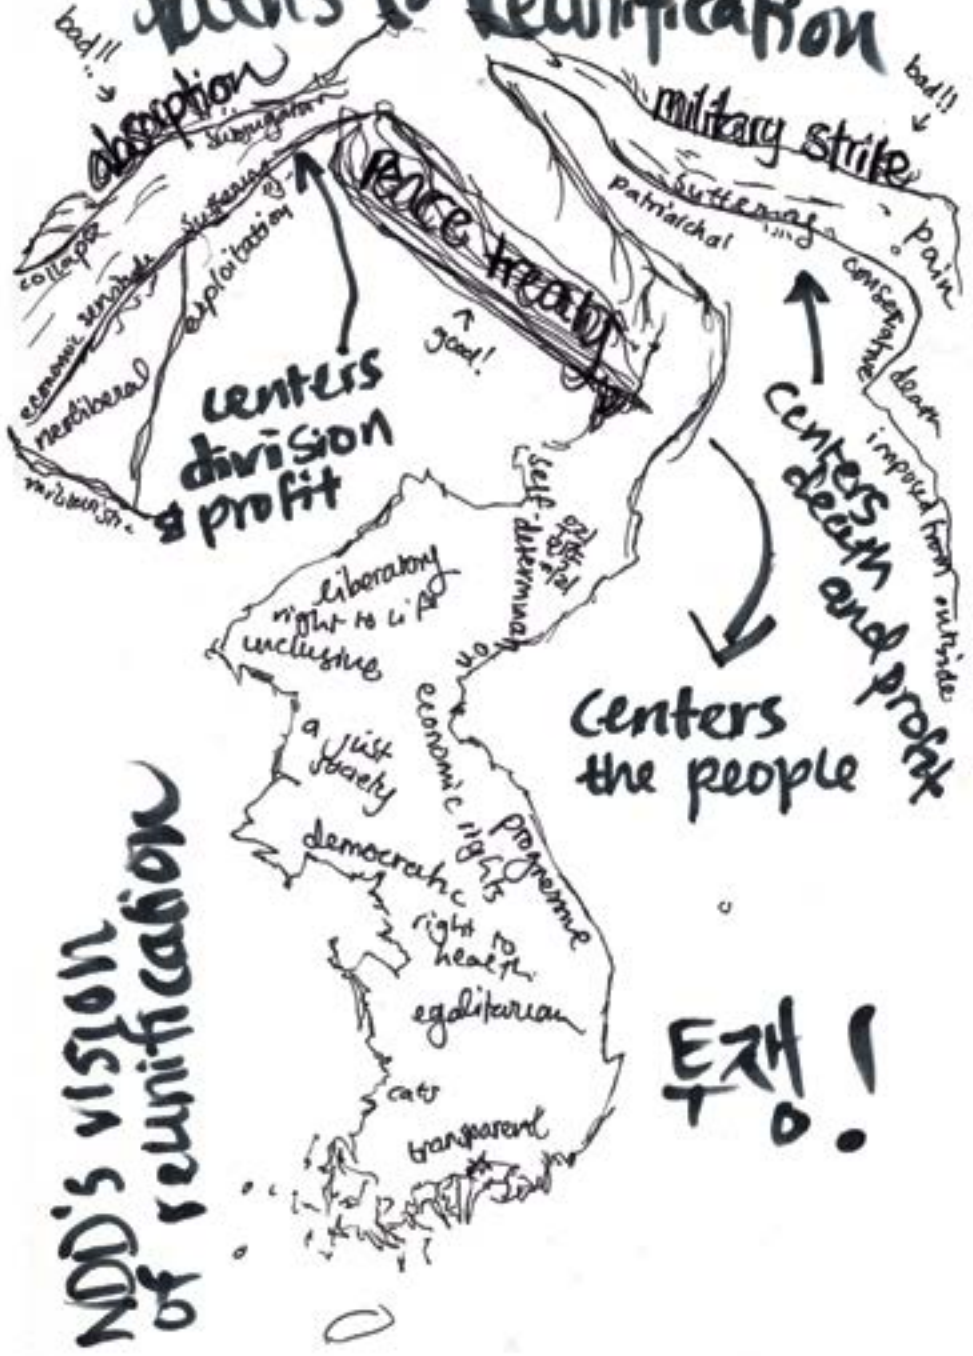 Paths to Reunification
bad!!
absorption
subjugation
suffering
exploitation
collapse
economic
neoliberal
militaristic
centers
division
& profit
Peace treaty
good!
bad!!
military strike
suffering
patriarchal
pain
conservative
death
imposed from outside
centers
death
and profit
centers
the people
self-determination
liberatory
right to life
inclusive
a just
society
economic rights
democratic
progressive
right to
health
egalitarian
cats
transparent
NDD's vision
of reunification
투쟁!